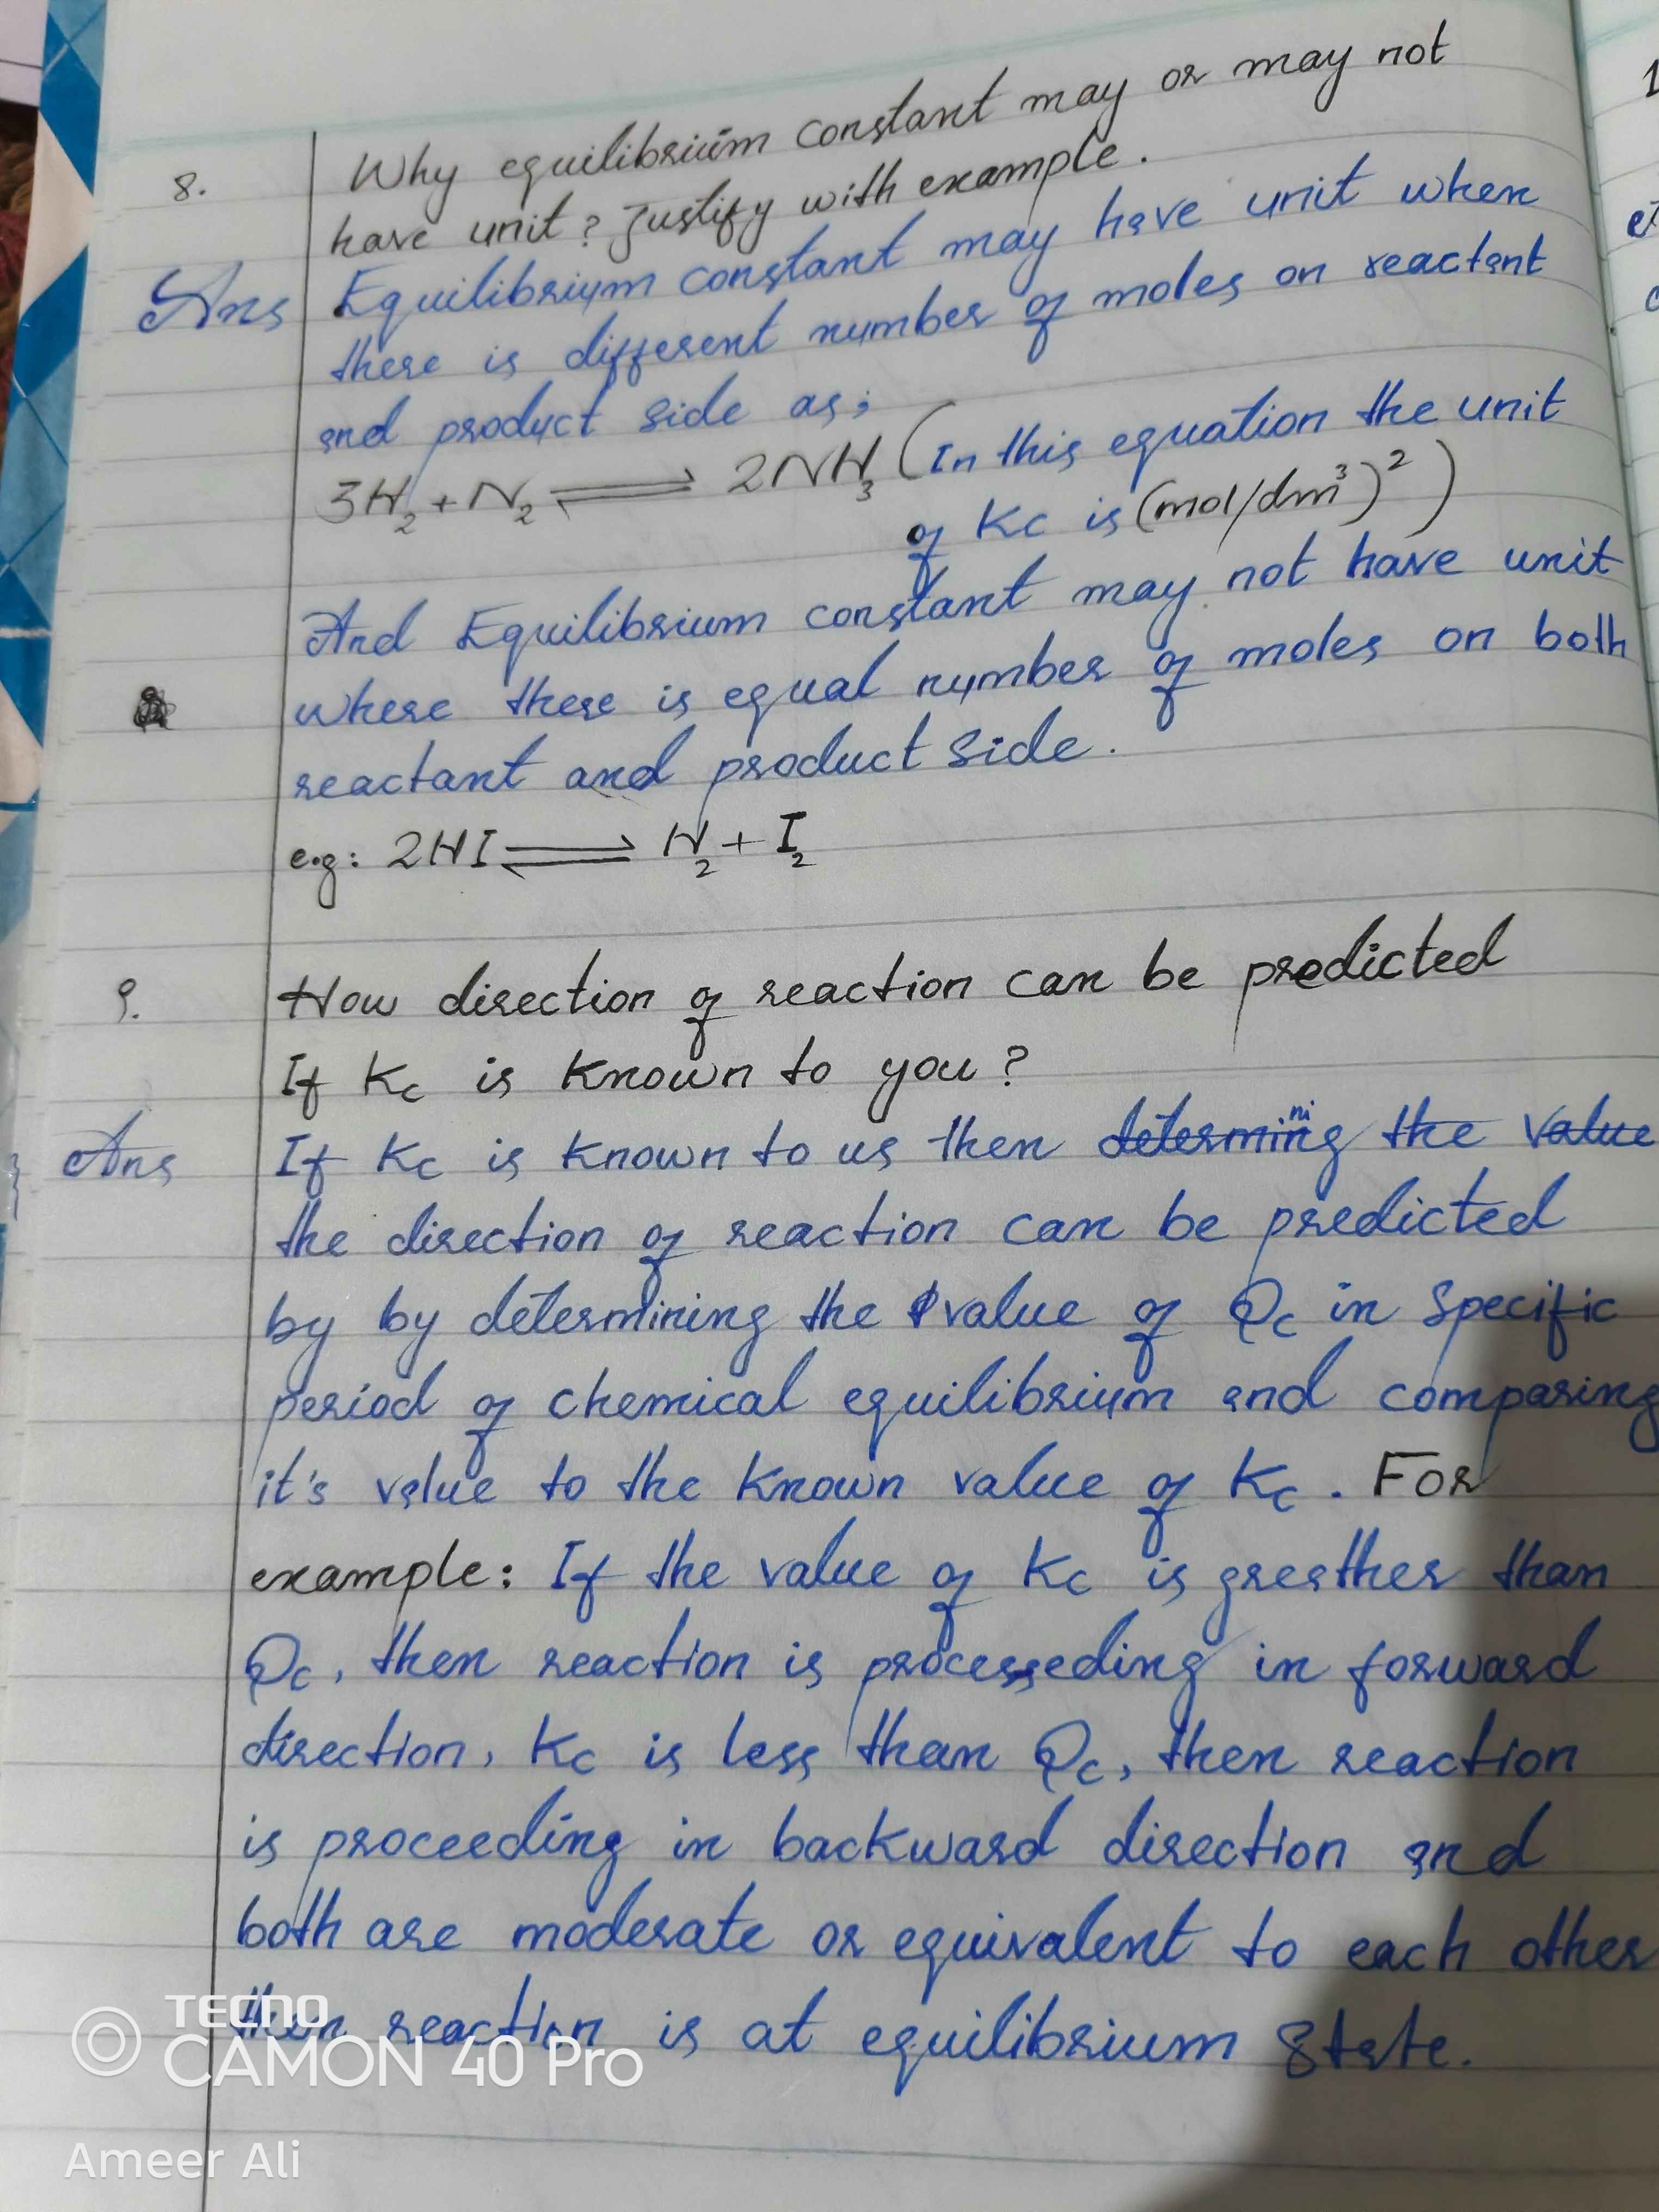 8. Why equilibrium constant may or may not
have unit? Justify with example.
Ans Equilibrium constant may have unit when
there is different number of moles on reactant
and product side as;
3H₂ + N₂ ⇌ 2NH₃ (In this equation the unit
of Kc is (mol/dm³)²)
And Equilibrium constant may not have unit
where there is equal number of moles on both
reactant and product side.
e.g: 2HI ⇌ H₂ + I₂
9. How direction of reaction can be predicted
If Kc is known to you?
Ans If Kc is known to us then determining the value
the direction of reaction can be predicted
by by determining the value of Qc in specific
period of chemical equilibrium and comparing
it's value to the known value of Kc. For
example: If the value of Kc is greather than
Qc, then reaction is processeding in forward
direction, Kc is less than Qc, then reaction
is proceeding in backward direction and
both are moderate or equivalent to each other
then reaction is at equilibrium state.
TECNO
CAMON 40 Pro
Ameer Ali